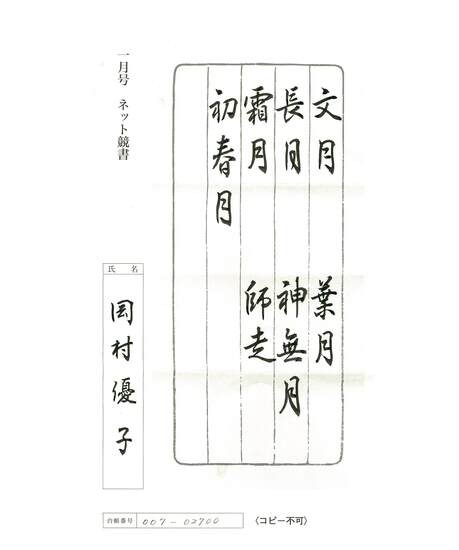 文月　葉月
長月　神無月
霜月　師走
初春月
一月号　ネット競書
氏　名
岡村優子
台帳番号　007-02700
〈コピー不可〉